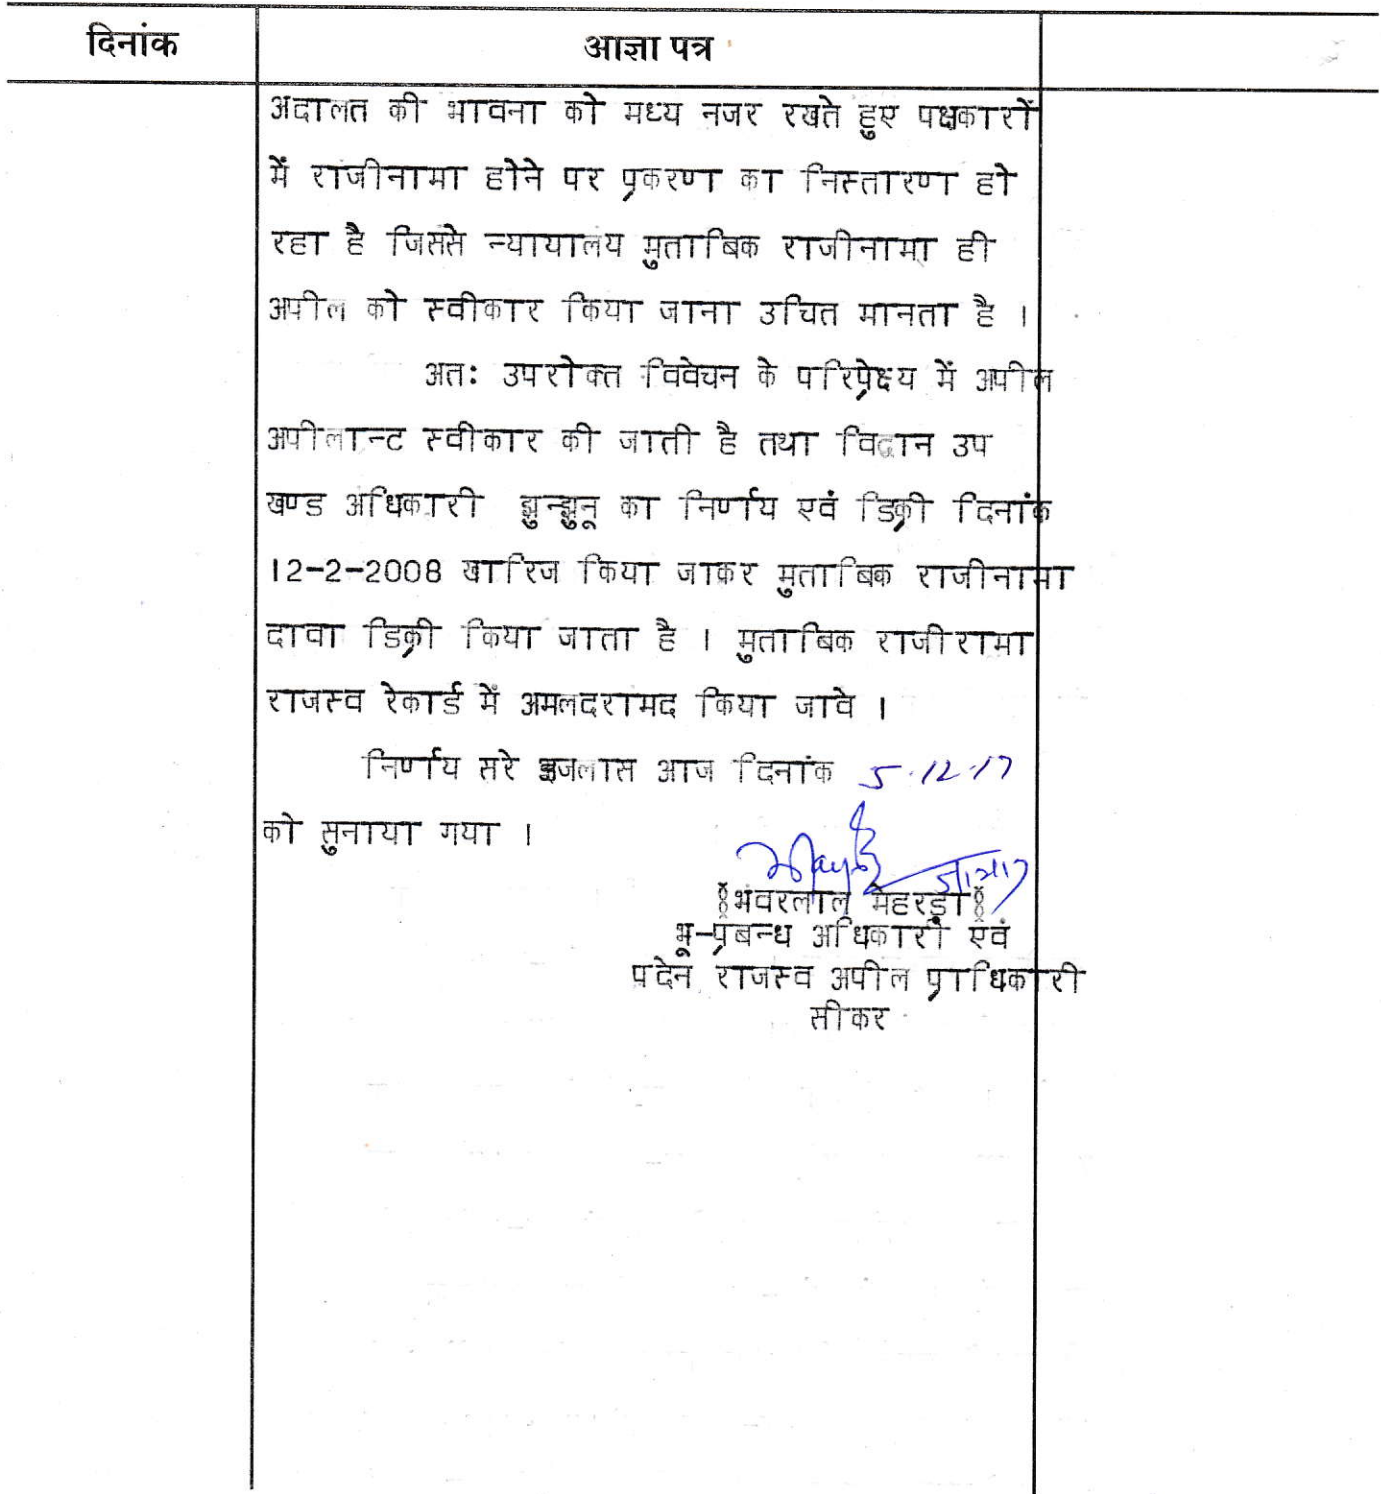 दिनांक आज्ञा पत्र
अदालत की भावना को मध्य नजर रखते हुए पक्षकारों
में राजीनामा होने पर प्रकरण का निस्तारण हो
रहा है जिससे न्यायालय मुताबिक राजीनामा ही
अपील को स्वीकार किया जाना उचित मानता है ।
अतः उपरोक्त विवेचन के परिप्रेक्ष्य में अपील
अपीलान्ट स्वीकार की जाती है तथा विद्वान उप
खण्ड अधिकारी झुन्झुनू का निर्णय एवं डिक्री दिनांक
12-2-2008 खारिज किया जाकर मुताबिक राजीनामा
दावा डिक्री किया जाता है । मुताबिक राजीरामा
राजस्व रेकार्ड में अमलदरामद किया जावे ।
निर्णय सरे इजलास आज दिनांक 5.12.17
को सुनाया गया ।
भंवरलाल मेहरड़ा
भू-प्रबन्ध अधिकारी एवं
पदेन राजस्व अपील प्राधिकारी
सीकर